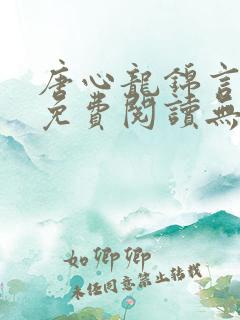 唐心龍錦言
免費閱讀無
如卿卿
未经同意禁止转载